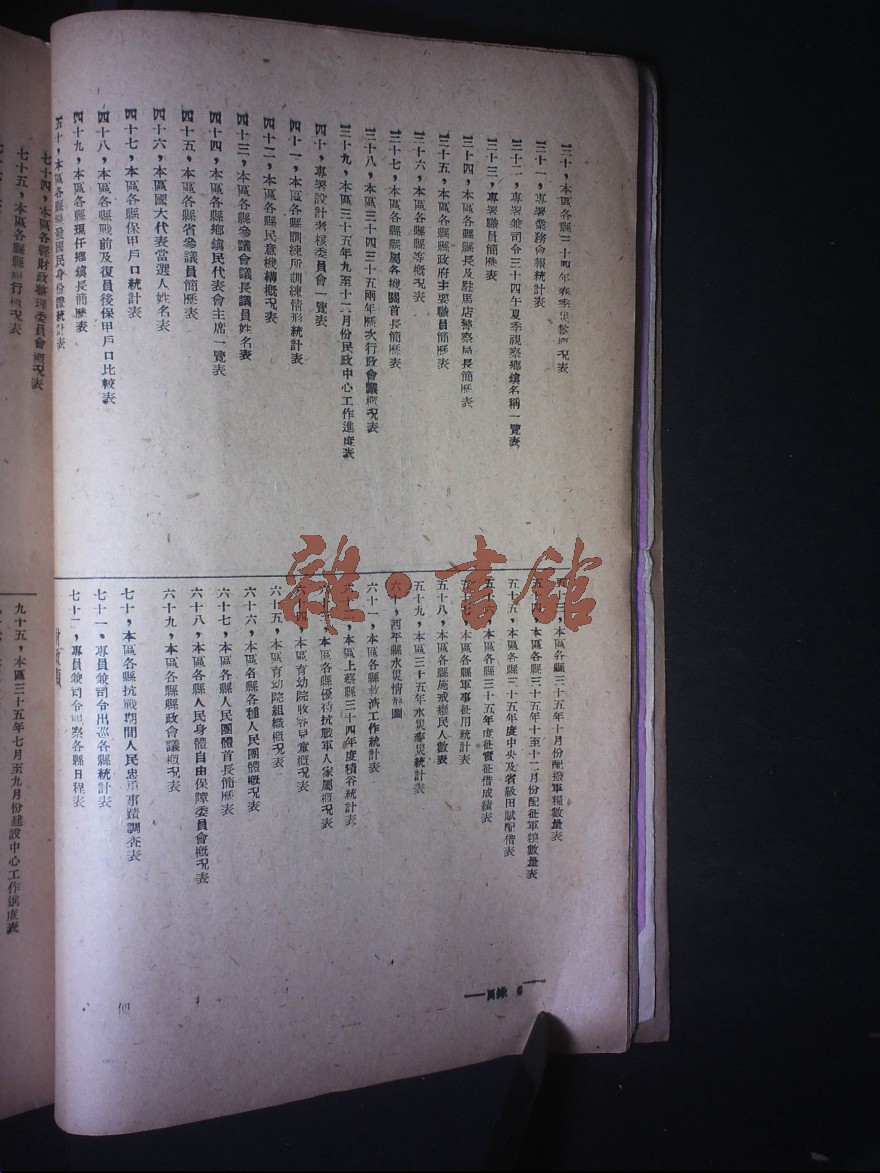 三十，本區各縣三十四年春季災歉概况表
三十一，專署業務會報統計表
三十二，專署兼司令三十四年夏季視察鄉鎮名稱一覽表
三十三，專署職員簡歷表
三十四，本區各縣縣長及駐馬店警察局長簡歷表
三十五，本區各縣縣政府主要職員簡歷表
三十六，本區各縣縣等概况表
三十七，本區各縣縣屬各機關首長簡歷表
三十八，本區三十四三十五兩年歷次行政會議概况表
三十九，本區三十五年九至十二月份民政中心工作進度表
四十，專署設計考核委員會一覽表
四十一，本區各縣訓練所訓練情形統計表
四十二，本區各縣民意機構概况表
四十三，本區各縣參議會議長議員姓名表
四十四，本區各縣鄉鎮民代表會主席一覽表
四十五，本區各縣省參議員簡歷表
四十六，本區國大代表當選人姓名表
四十七，本區各縣保甲戶口統計表
四十八，本區各縣戰前及復員後保甲戶口比較表
四十九，本區各縣現任鄉鎮長簡歷表
五十，本區各縣縣發國民身份證統計表
五十三，本區各縣三十五年十月份配撥軍糧數量表
五十四，本區各縣三十五年十至十二月份配征軍糧數量表
五十五，本區各縣三十五年度中央及省級田賦配借表
五十六，本區各縣三十五年度征實征借成績表
五十七，本區各縣軍事征用統計表
五十八，本區各縣施戒癮民人數表
五十九，本區三十五年水災麥災統計表
六十，西平縣水災情形圖
六十一，本區各縣救濟工作統計表
六十二，本區上蔡縣三十四年度積谷統計表
六十三，本區各縣優待抗戰軍人家屬概况表
六十四，本區育幼院收容兒童概况表
六十五，本區育幼院組織概况表
六十六，本區各縣各種人民團體概况表
六十七，本區各縣人民團體首長簡歷表
六十八，本區各縣人民身體自由保障委員會概况表
六十九，本區各縣縣政會議概况表
七十，本區各縣抗戰期間人民忠勇事蹟調查表
七十一，專員兼司令出巡各縣統計表
七十二，專員兼司令視察各縣日程表
財政類
目錄 6
七十四，本區各縣財政整理委員會概况表
七十五，本區各縣縣銀行概况表
九十五，本區三十五年七月至九月份建設中心工作進度表
雜·書館